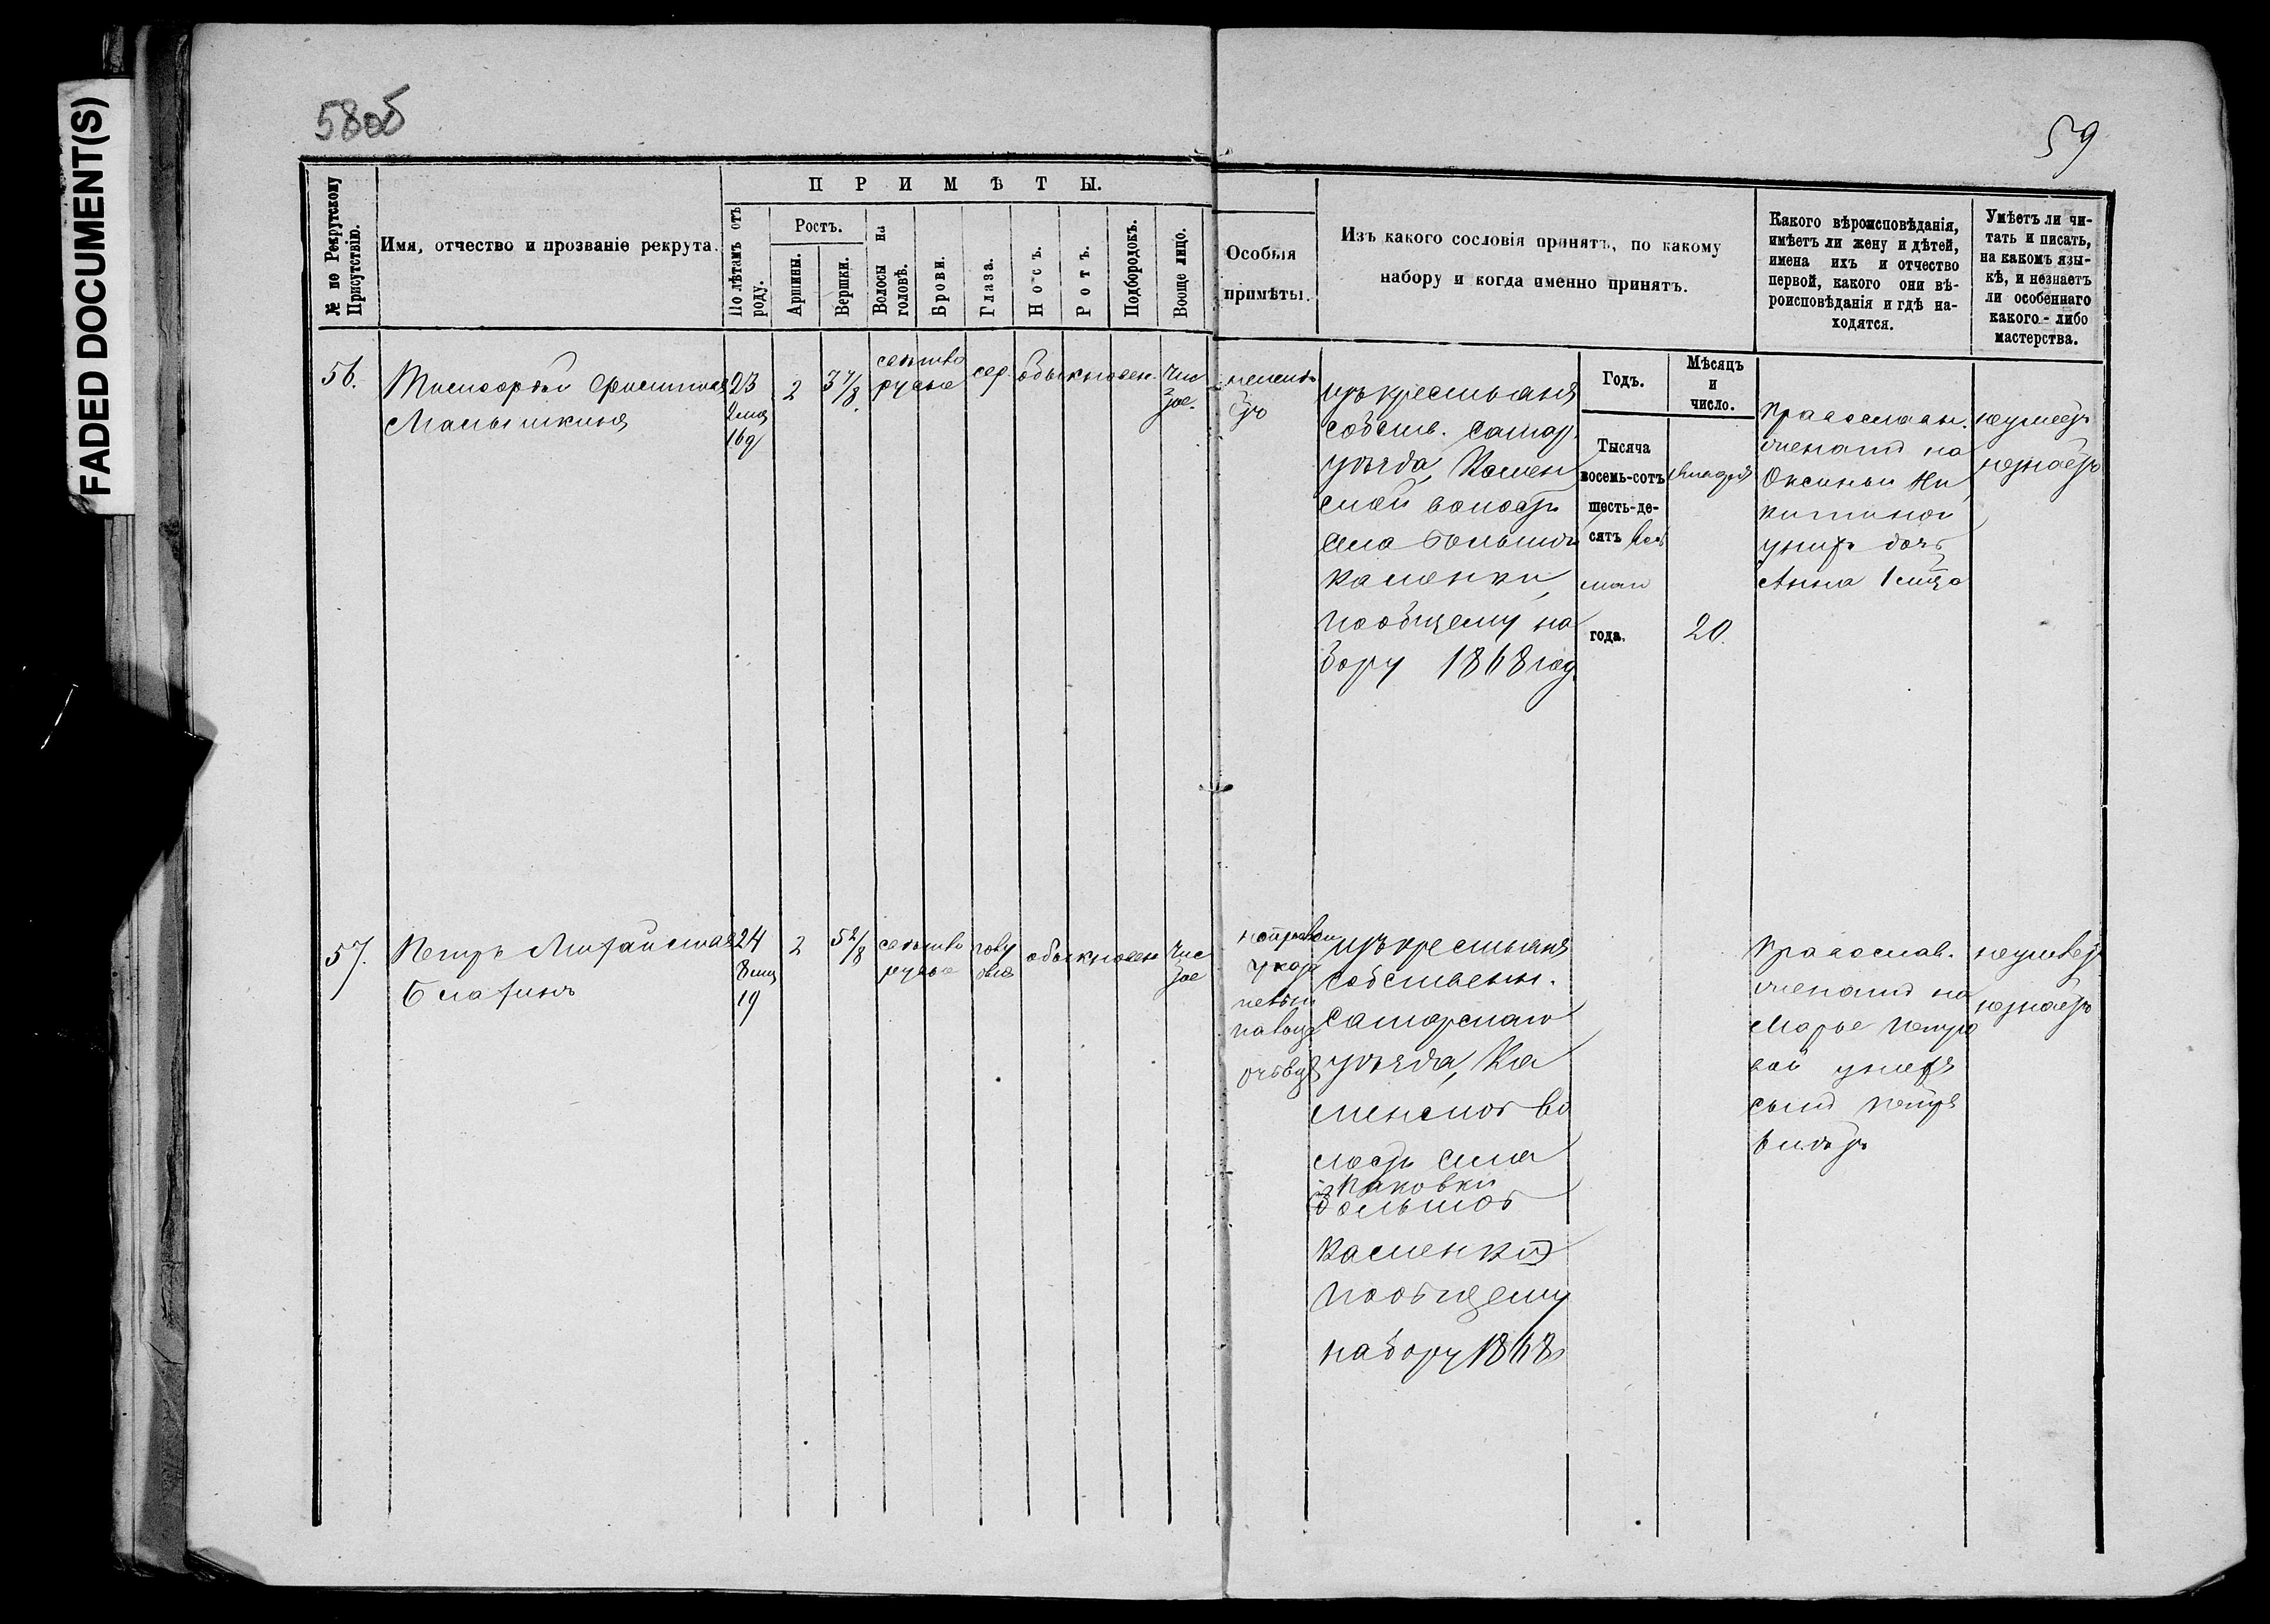 FADED DOCUMENT(S)
58об
59
№ по Рекрутскому Присутствію.
Имя, отчество и прозваніе рекрута.
ПРИМѢТЫ.
По лѣтамъ отъ роду.
Ростъ.
Аршины.
Вершки.
Волосы на головѣ.
Брови.
Глаза.
Носъ.
Ротъ.
Подбородокъ.
Вооще лицо.
Особыя
примѣты.
Изъ какого сословія принятъ, по какому
набору и когда именно принятъ.
Какого вѣроисповѣданія,
имѣетъ ли жену и дѣтей,
имена ихъ и отчество
первой, какого они вѣ-
роисповѣданія и гдѣ на-
ходятся.
Умѣетъ ли чи-
тать и писать,
на какомъ язы-
кѣ, и незнаетъ
ли особеннаго
какого-либо
мастерства.
56.
Малышкинъ
23
2 мц
16 д
2
3 7/8
светло
русые
сер
обыкновен.
Чис
тое.
неимѣ
етъ
изъ крестьянъ
собств. Самар.
уѣзда, Камен
ской волости
села Большой
Каменки,
пообщему на
бору 1868 год
Годъ.
Тысяча
восемь-сотъ
шесть-де-
сятъ вось
маго
года.
Мѣсяцъ
и
число.
Января
20.
Православн.
женатъ на
Оксиньи Ни
китиной
у нихъ дочь
Анна 1 мца
неумѣетъ
незнаетъ
57.
Петръ
24
8 мц
19
2
5 2/8
светло
русые
голу
бые
обыкновен
Чис
тое
изъ крестьянъ
собственн.
Самарскаго
уѣзда, Ка
менской во
лости села
Большой
Каменки
пообщему
набору 1868
Православ.
женатъ на
Марье Петро
вой у нихъ
сынъ Петръ
6 недѣль
неумѣетъ
незнаетъ